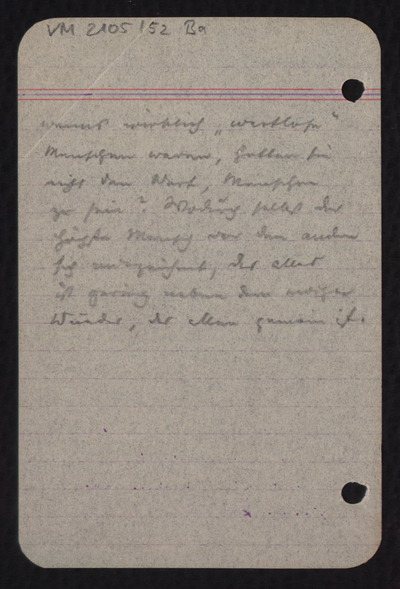 VM 2105/52 Ba
wenns wirklich „wertlose“
Menschen waren, hatten sie
nicht den Wert, Menschen
zu sein? Wodurch selbst der
höchste Mensch vor den andern
sich auszeichnet, das alles
ist gering neben dem
Wunder, das allen gemein ist.